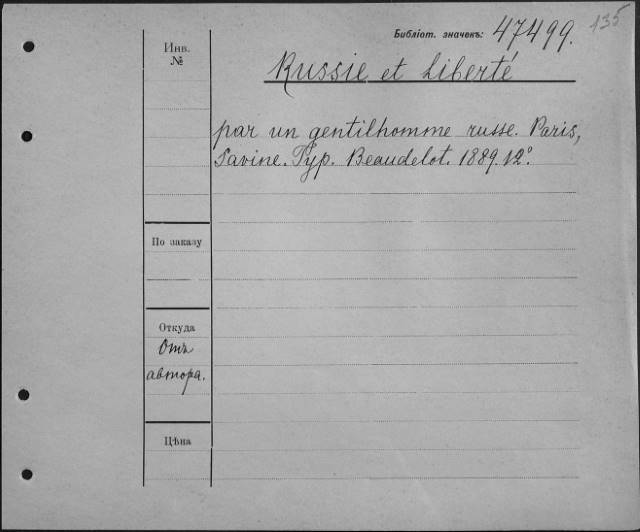 135
Библіот. значекъ: 47499.
Инв.
№
Russie et Liberté
par un gentilhomme russe. Paris,
Savine. Typ. Beaudelot. 1889. 12º.
По заказу
Откуда
Отъ
автора.
Цѣна